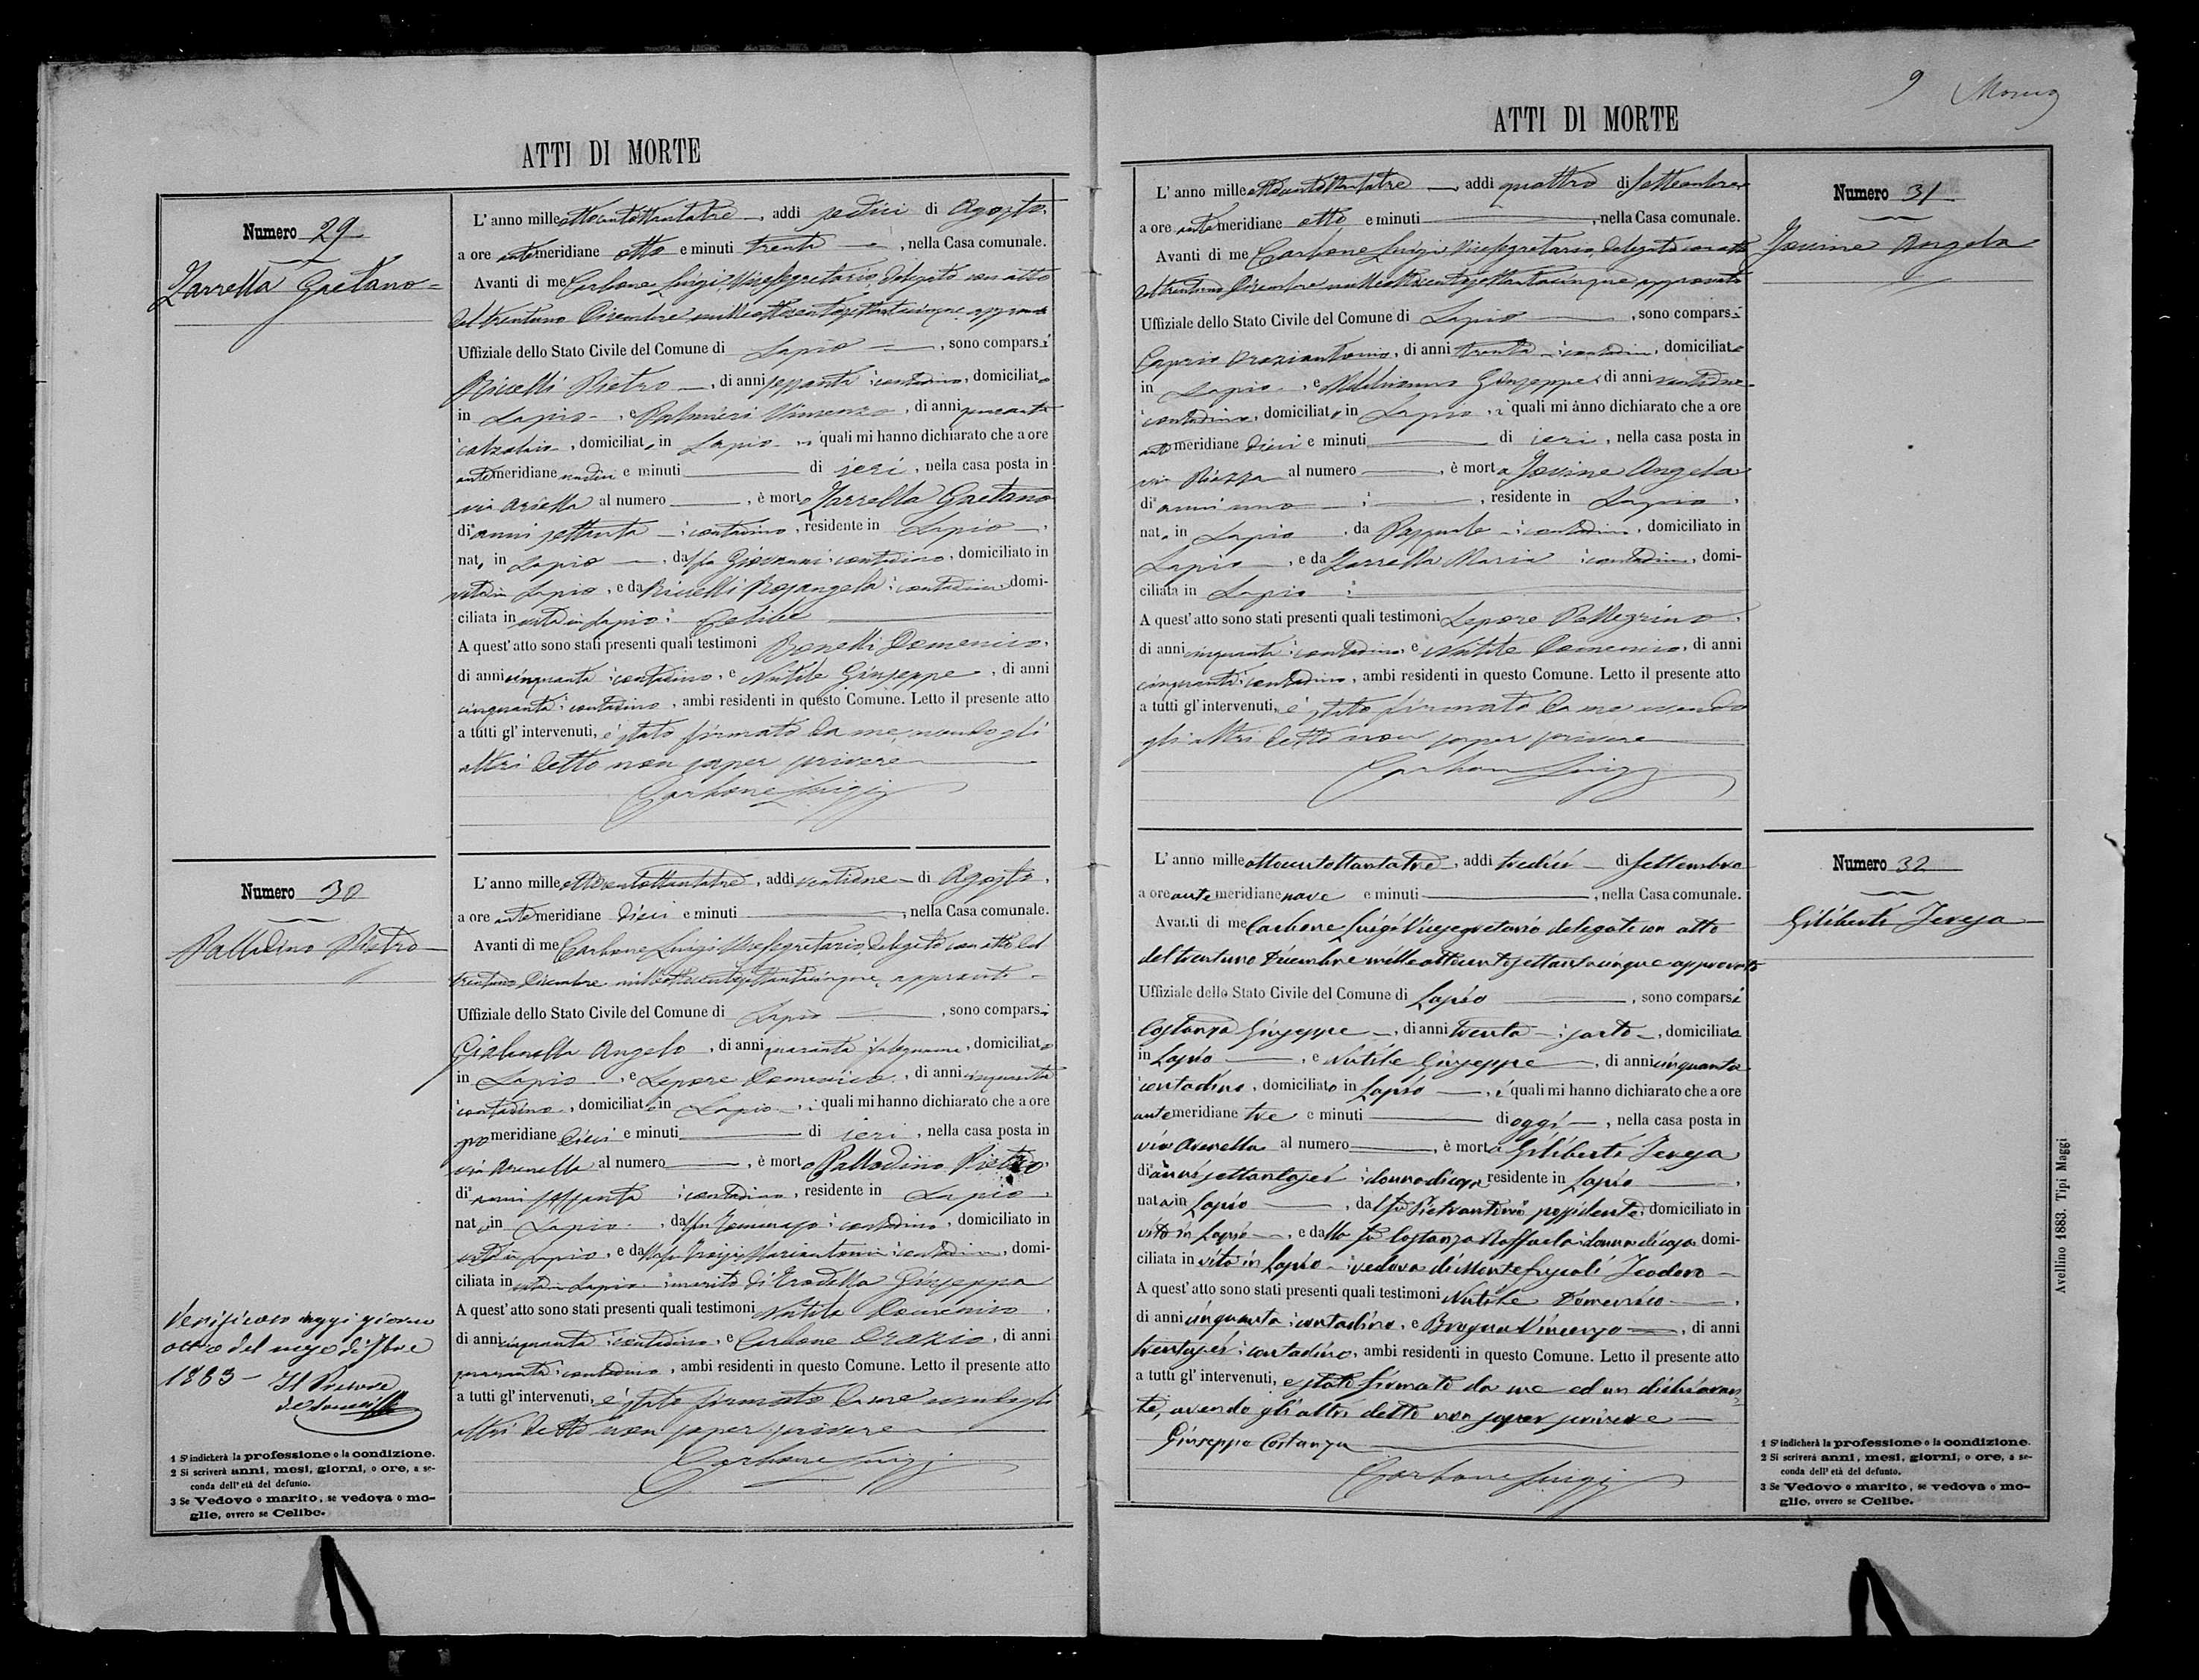 ATTI DI MORTE
Numero 29
Zarrella Gaetano
L'anno mille ottocentottantatre, addi sedici di Agosto
a ore antemeridiane otto e minuti trenta, nella Casa comunale.
Avanti di me Carbone Luigi Vicesegretario, delegato con atto
del trentuno Dicembre milleottocentosettantacinque approvato
Uffiziale dello Stato Civile del Comune di Lapio, sono comparsi
Ricelli Pietro, di anni sessanta contadino, domiciliato
in Lapio, e Palmieri Vincenzo, di anni quaranta
calzolaio, domiciliato in Lapio, i quali mi hanno dichiarato che a ore
antemeridiane undici e minuti di ieri, nella casa posta in
via al numero, è morto Zarrella Gaetano
di anni settanta contadino, residente in Lapio,
nato in Lapio, dal fu Giovanni contadino, domiciliato in
vita in Lapio, e da Ricelli Rosangela contadina, domi-
ciliata in vita in Lapio celibe
A quest'atto sono stati presenti quali testimoni Bonelli Domenico,
di anni cinquanta contadino, e Nutile Giuseppe, di anni
cinquanta contadino, ambi residenti in questo Comune. Letto il presente atto
a tutti gl'intervenuti, è stato firmato da me, avendo gli
altri detto non saper scrivere
Carbone Luigi
Numero 30
Palladino Pietro
L'anno mille ottocentottantatre, addi ventidue di Agosto,
a ore antemeridiane dieci e minuti, nella Casa comunale.
Avanti di me Carbone Luigi Vicesegretario, delegato con atto del
trentuno Dicembre milleottocentosettantacinque approvato
Uffiziale dello Stato Civile del Comune di Lapio, sono comparsi
Angelo, di anni quaranta falegname, domiciliato
in Lapio, e Lepore Domenico, di anni cinquanta
contadino, domiciliato in Lapio, i quali mi hanno dichiarato che a ore
pomeridiane dieci e minuti di ieri, nella casa posta in
via Arenella al numero, è morto Palladino Pietro,
di anni sessanta contadino, residente in Lapio,
nato in Lapio, dal fu Tommaso contadino, domiciliato in
vita in Lapio, e dalla fu Mariantonia contadina, domi-
ciliata in vita in Lapio marito di Giuseppa
A quest'atto sono stati presenti quali testimoni Nutile Domenico,
di anni cinquanta contadino, e Carbone Orazio, di anni
quaranta contadino, ambi residenti in questo Comune. Letto il presente atto
a tutti gl'intervenuti, è stato firmato da me avendo gli
altri detto non saper scrivere
Carbone Luigi
Verificato oggi giorno
otto del mese di 9bre
1883
Il Pretore
1 S'indicherà la professione o la condizione.
2 Si scriverà anni, mesi, giorni, o ore, a se-
conda dell'età del defunto.
3 Se Vedovo o marito, se vedova o mo-
glie, ovvero se Celibe.
9
ATTI DI MORTE
Numero 31
Jovine Angela
L'anno mille ottocentottantatre, addi quattro di Settembre
a ore antemeridiane otto e minuti, nella Casa comunale.
Avanti di me Carbone Luigi Vicesegretario, delegato con atto
del trentuno Dicembre milleottocentosettantacinque approvato
Uffiziale dello Stato Civile del Comune di Lapio, sono comparsi
Caprio Oraziantonio, di anni trenta contadino, domiciliato
in Lapio, e Giuseppe, di anni ventidue
contadino, domiciliato in Lapio, i quali mi ànno dichiarato che a ore
antemeridiane dieci e minuti di ieri, nella casa posta in
via Piazza al numero, è morta Jovine Angela
di anni uno, residente in Lapio,
nata in Lapio, da Pasquale contadino, domiciliato in
Lapio, e da Zarrella Maria contadina, domi-
ciliata in Lapio
A quest'atto sono stati presenti quali testimoni Lepore Pellegrino,
di anni cinquanta contadino, e Nutile Domenico, di anni
cinquanta contadino, ambi residenti in questo Comune. Letto il presente atto
a tutti gl'intervenuti, è stato firmato da me avendo
gli altri detto non saper scrivere
Carbone Luigi
Numero 32
Giliberti Teresa
L'anno mille ottocentottantatre, addi tredici di Settembre
a ore antemeridiane nove e minuti, nella Casa comunale.
Avanti di me Carbone Luigi Vicesegretario delegato con atto
del trentuno Dicembre milleottocentosettantacinque approvato
Uffiziale dello Stato Civile del Comune di Lapio, sono comparsi
Costanza Giuseppe, di anni trenta sarto, domiciliato
in Lapio, e Nutile Giuseppe, di anni cinquanta
contadino, domiciliato in Lapio, i quali mi hanno dichiarato che a ore
antemeridiane tre e minuti di oggi, nella casa posta in
via Arenella al numero, è morta Giliberti Teresa
di anni settantasei donna di casa residente in Lapio,
nata in Lapio, dal fu Pietrantonio possidente, domiciliato in
vita in Lapio, e dalla fu Costanza Raffaela donna di casa domi-
ciliata in vita in Lapio vedova di Montefuscoli Teodoro
A quest'atto sono stati presenti quali testimoni Nutile Domenico,
di anni cinquanta contadino, e Brogna Vincenzo, di anni
trentasei contadino, ambi residenti in questo Comune. Letto il presente atto
a tutti gl'intervenuti, è stato firmato da me ed un dichiaran-
te, avendo gli altri detto non saper scrivere
Giuseppe Costanza
Carbone Luigi
1 S'indicherà la professione o la condizione.
2 Si scriverà anni, mesi, giorni, o ore, a se-
conda dell'età del defunto.
3 Se Vedovo o marito, se vedova o mo-
glie, ovvero se Celibe.
Avellino 1883. Tipi Maggi